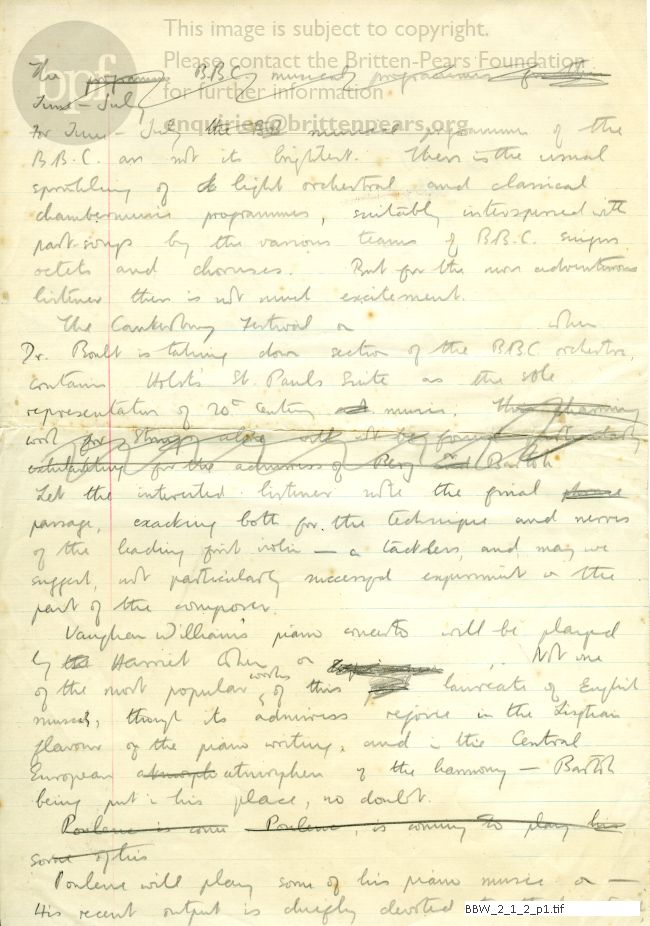 This image is subject to copyright.
Please contact the Britten-Pears Foundation
for further information
enquiries@brittenpears.org
bpf
The programme B.B.C. musical programmes for the
June – July
For June – July the BB musical programmes of the
B.B.C. are not its brightest. There is the usual
sprinkling of light orchestral and classical
chambermusic programmes, suitably interspersed with
part-songs by the various teams of B.B.C. singers
octets and choruses. But for the more adventurous
listener there is not much excitement.
The Canterbury Festival on when
Dr. Boult is taking down section of the B.B.C. orchestra,
contains Holst's St. Pauls Suite as the sole
representation of 20th century music. This charming
work for strings along will not be found particularly
exhilarating for the admirers of Berg and Bartok
Let the interested listener note the final
passage, exacting both for the technique and nerves
of the leading first violin — a tactless, and may we
suggest, not particularly successful experiment on the
part of the composer.
Vaughan William's piano concerto will be played
by Harriet Cohen on , Not one
of the most popular works of this laureate of English
music, though its admirers rejoice in the Lisztian
flavour of the piano writing, and in the Central
European atmosphere of the harmony — Bartok
being put in his place, no doubt.
Poulenc is come Poulenc, is coming to play his
some of his
Poulenc will play some of his piano music on —
His recent output is chiefly devoted to the
BBW_2_1_2_p1.tif